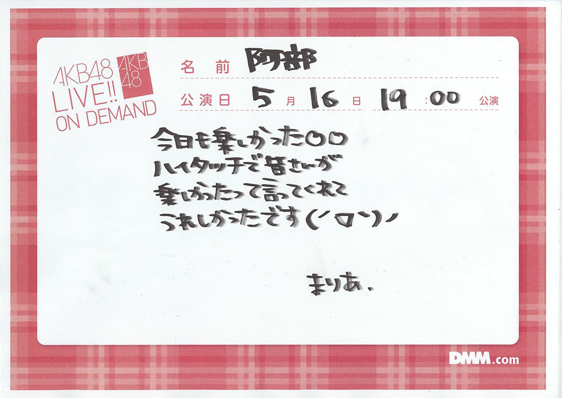 AKB48
LIVE!!
ON DEMAND
AKB
48
名前 阿部
公演日 5月16日 19:00 公演
今日も楽しかった〇〇
ハイタッチで皆さんが
楽しかったって言ってくれて
うれしかったです(´□`)ノ
まりあ.
DMM.com